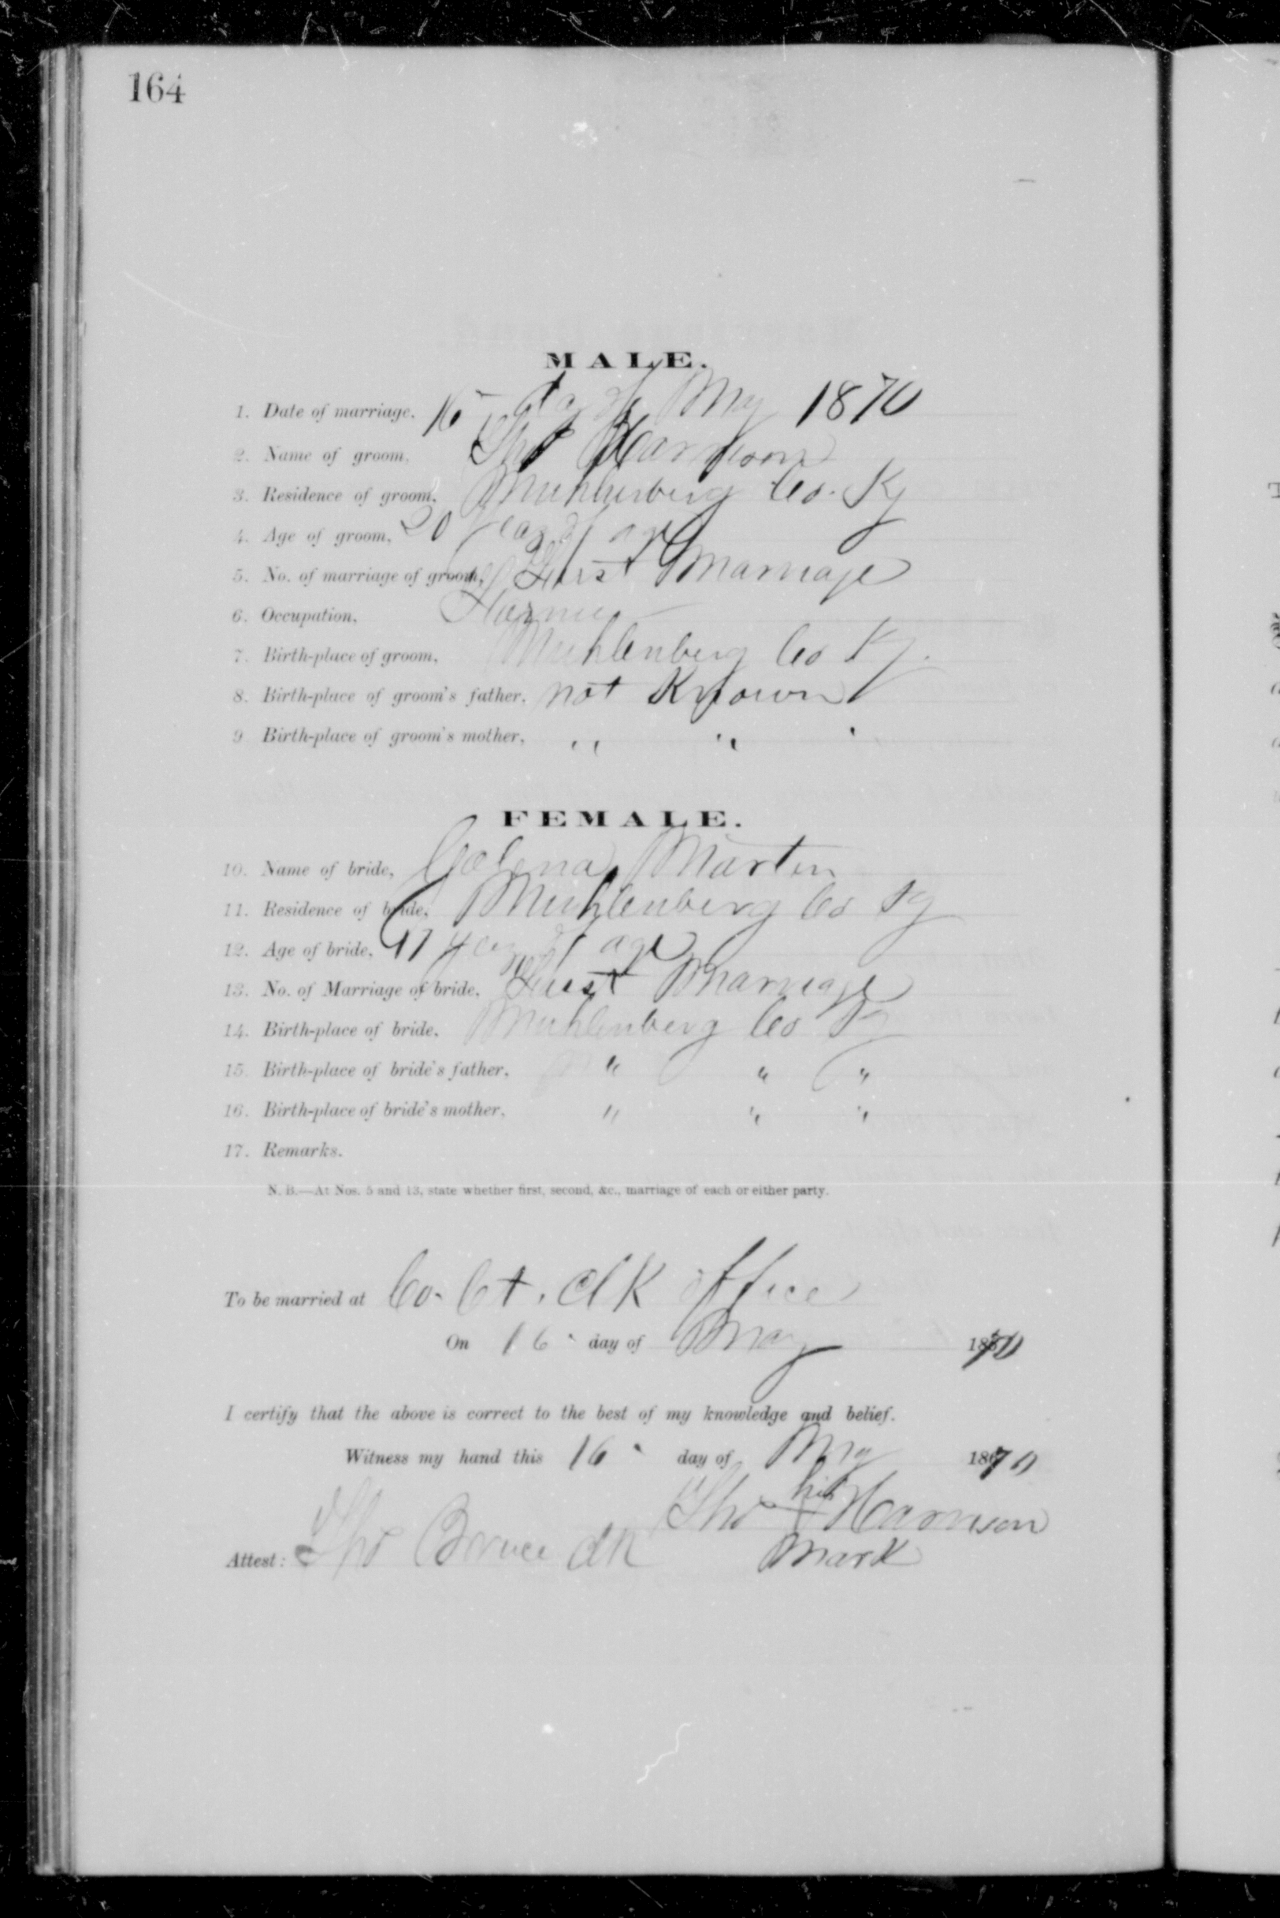 164
MALE.
1. Date of marriage, 16 day of May 1870
2. Name of groom, Tho Harrison
3. Residence of groom, Muhlenberg Co. Ky
4. Age of groom, 20 years of age
5. No. of marriage of groom, First Marriage
6. Occupation, Farmer
7. Birth-place of groom, Muhlenberg Co Ky.
8. Birth-place of groom's father, not Known
9 Birth-place of groom's mother, " " "
FEMALE.
10. Name of bride, Martin
11. Residence of bride, Muhlenberg Co Ky
12. Age of bride, 17 years of age
13. No. of Marriage of bride, First Marriage
14. Birth-place of bride, Muhlenberg Co Ky
15. Birth-place of bride's father, " " "
16. Birth-place of bride's mother, " " "
17. Remarks.
N. B.—At Nos. 5 and 13, state whether first, second, &c., marriage of each or either party.
To be married at Co. Ct. Clk office
On 16 day of May 1870
I certify that the above is correct to the best of my knowledge and belief.
Witness my hand this 16 day of May 1870
Tho his X Harrison
mark
Attest: Tho Bruce Clk